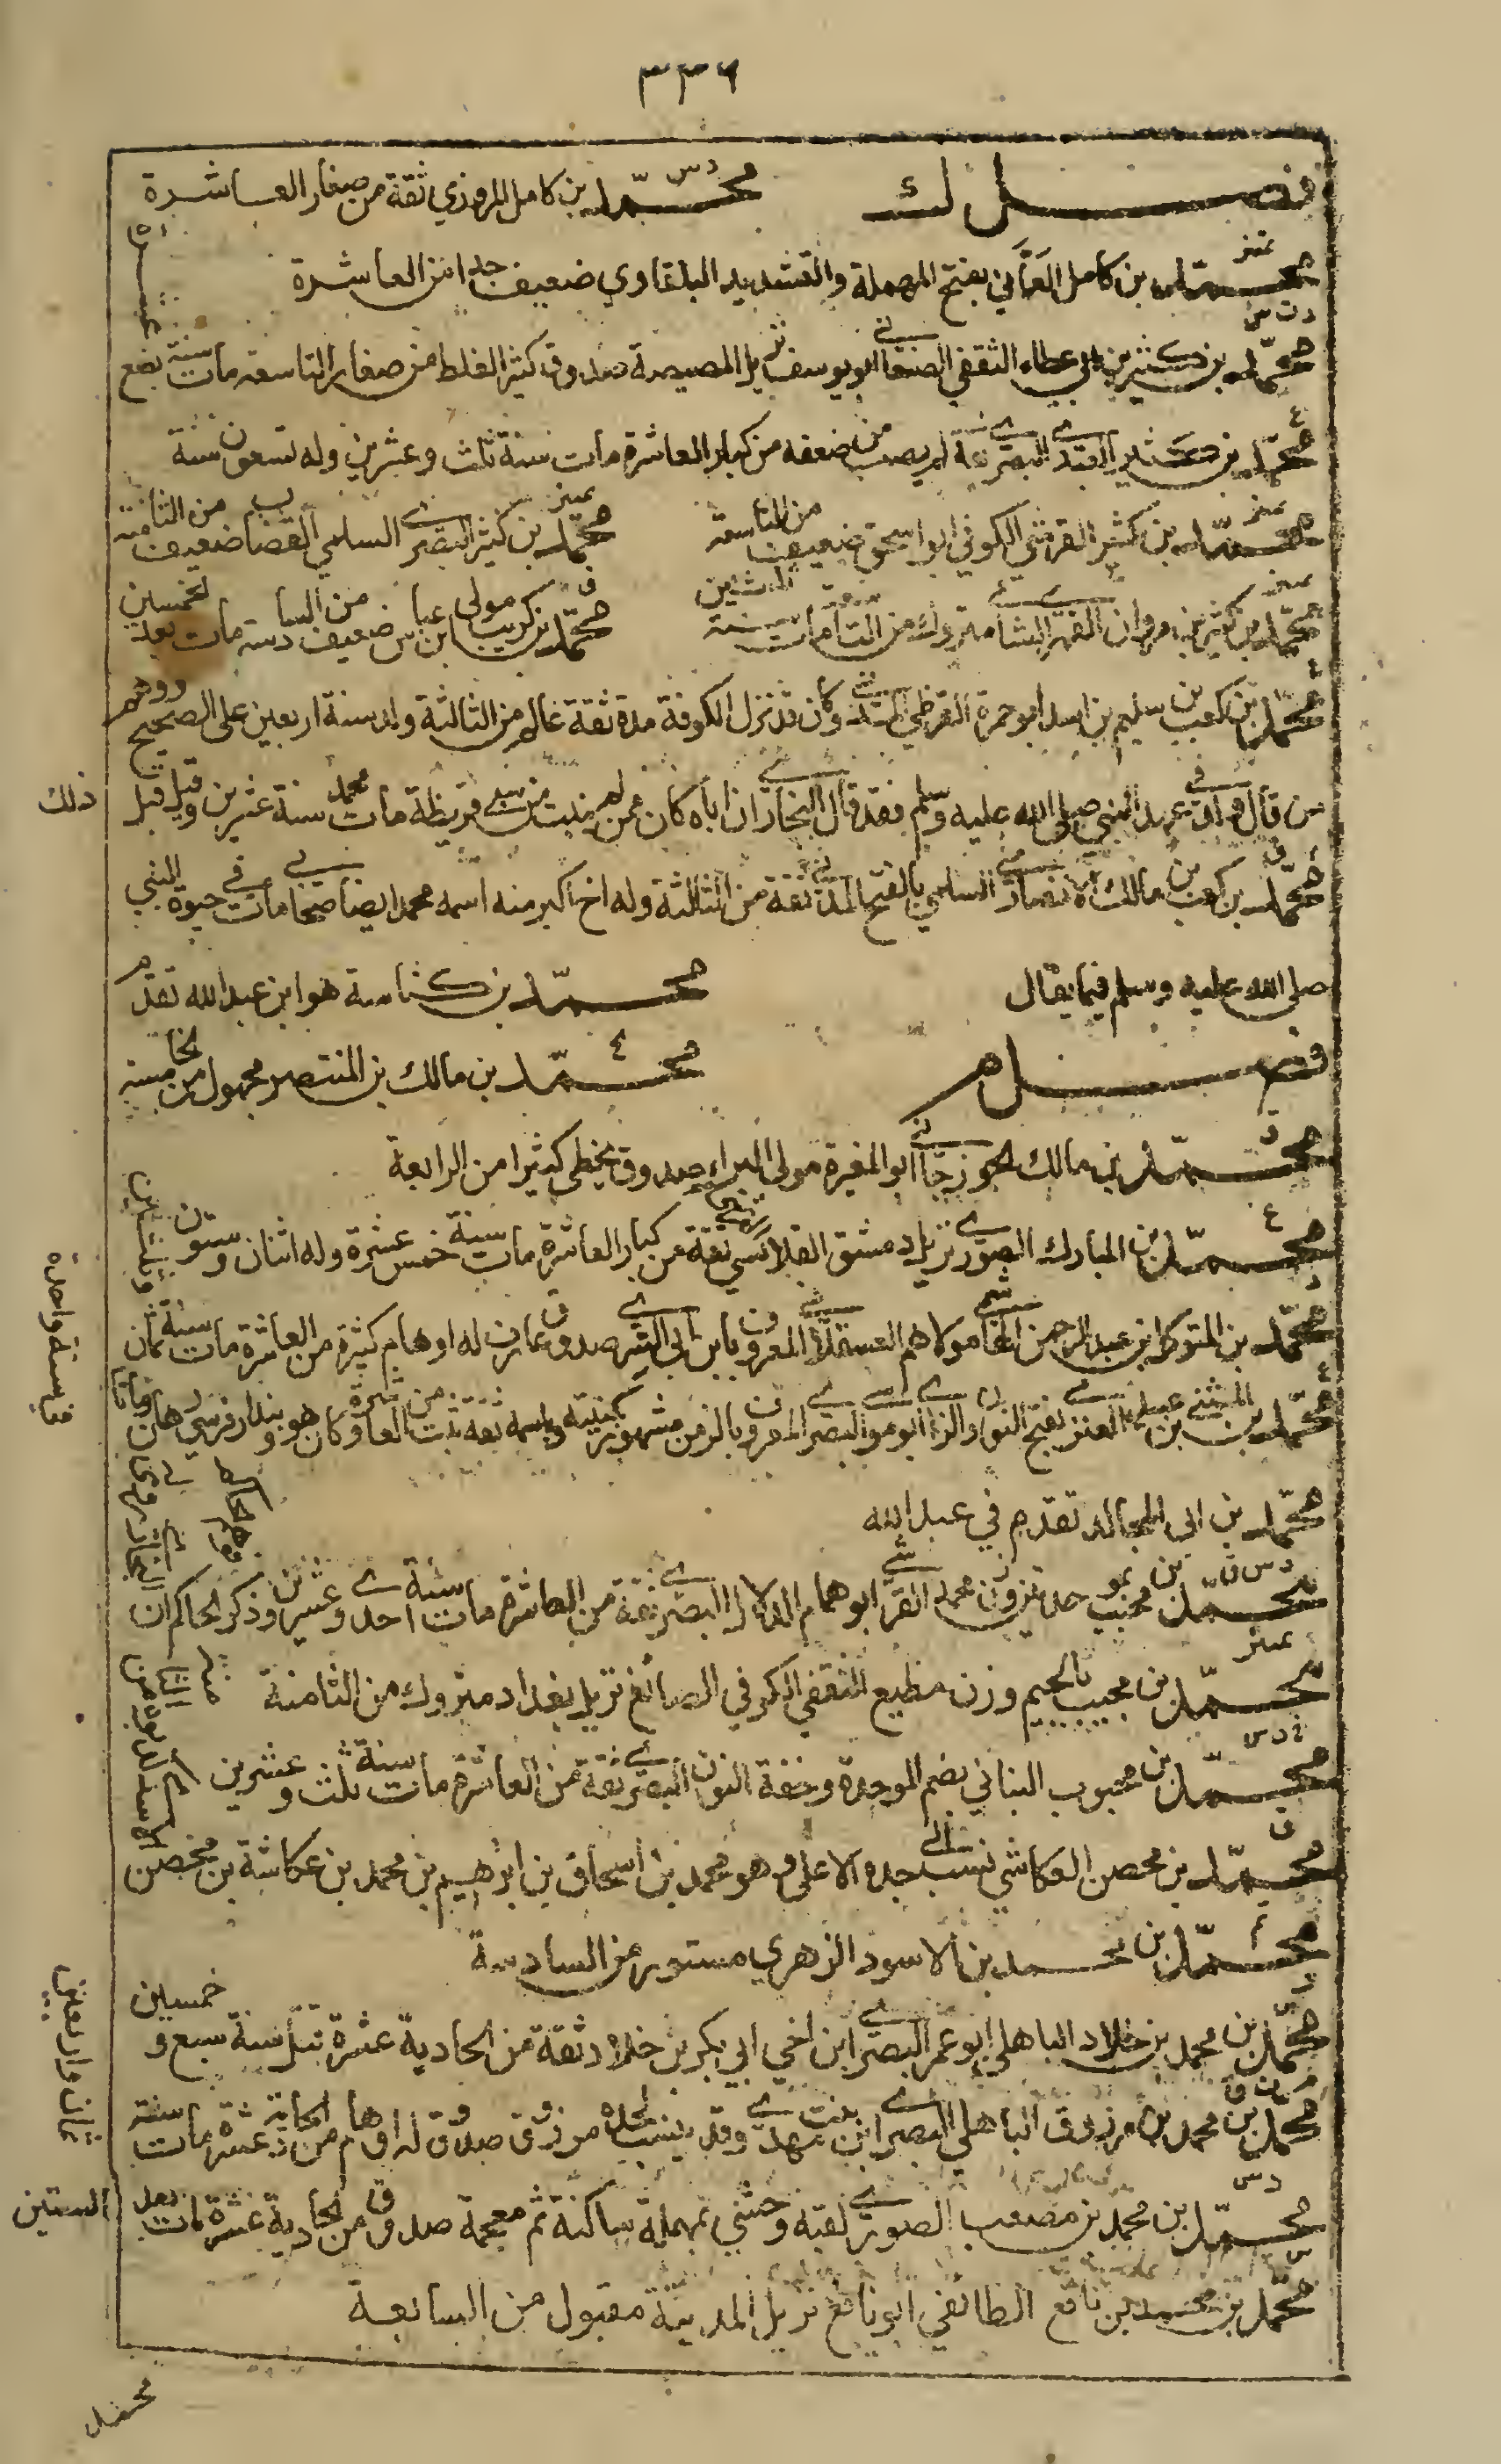 ٣٣٦
فصل ك محمد بن كامل المروزي ثقة من صغار العاشرة
محمد بن كامل العماني بفتح المهملة والتشديد البلقاوي ضعيف جدا من العاشرة
محمد بن كثير بن ابي عطاء الثقفي الصنعاني ابو يوسف نزيل المصيصة صدوق كثير الغلط من صغار التاسعة مات سنة بضع
عشر
محمد بن كثير العبدي البصري ثقة لم يصب من ضعفه من كبار العاشرة مات سنة ثلث وعشرين وله تسعون سنة
محمد بن كثير القرشي الكوفي ابو اسحق ضعيف من التاسعة محمد بن كثير البصري السلمي القصاب ضعيف من الثامنة
محمد بن كثير بن مروان الفهري الشامي متروك من التاسعة مات سنة الثلثين محمد بن كريب مولى ابن عباس ضعيف من السادسة مات بعد الخمسين
محمد بن كعب بن سليم بن اسد ابو حمزة القرظي المدني وكان قد نزل الكوفة مدة ثقة عالم من الثالثة ولد سنة اربعين على الصحيح ووهم
من قال ولد في عهد النبي صلى الله عليه وسلم فقد قال البخاري ان اباه كان ممن لم ينبت من سبي قريظة مات محمد سنة عشرين وقيل قبل ذلك
محمد بن كعب بن مالك الانصاري السلمي بالفتح المدني ثقة من الثالثة وله اخ اكبر منه اسمه محمد ايضا صحابي مات في حيوة النبي
صلى الله عليه وسلم فيما يقال محمد بن كناسة هو ابن عبد الله تقدم
فصل م محمد بن مالك بن المنتصر مجهول من الخامسة
محمد بن مالك الجوزجاني ابو المغيرة مولى البراء صدوق يخطي كثيرا من الرابعة
محمد بن المبارك الصوري نزيل دمشق القلانسي القرشي ثقة من كبار العاشرة مات سنة خمس عشرة وله اثنان وستون
محمد بن المتوكل بن عبد الرحمن الهاشمي مولاهم العسقلاني المعروف بابن ابي السري صدوق عارف له اوهام كثيرة من العاشرة مات سنة ثمان
وثلثين
محمد بن المثنى بن عبيد العنزي بفتح النون والزاي ابو موسى البصري المعروف بالزمن مشهور بكنيته وباسمه ثقة ثبت من العاشرة وكان هو وبندار فرسي رهان وماتا
في سنة واحدة
محمد بن ابي المجالد تقدم في عبد الله
محمد بن محبب بموحدتين وزن محمد القرشي ابو همام الدلال البصري ثقة من العاشرة مات سنة احدى وعشرين وذكر الحاكم ان
البخاري روى
محمد بن مجيب بالجيم وزن مطيع الثقفي الكوفي الصائغ نزيل بغداد متروك من الثامنة
محمد بن محبوب البناني بضم الموحدة وخفة النون البصري ثقة من العاشرة مات سنة ثلث وعشرين
محمد بن محصن العكاشي نسب الى جده الاعلى وهو محمد بن اسحاق بن ابرهيم بن محمد بن عكاشة بن محصن
محمد بن محمد بن الاسود الزهري مستور من السادسة
محمد بن محمد بن خلاد الباهلي ابو عمر البصري ابن اخي ابي بكر بن خلاد ثقة من الحادية عشرة قتل سنة سبع و خمسين
محمد بن محمد بن مرزوق الباهلي البصري ابن بنت مهدي وقد ينسب لجده مرزوق صدوق له اوهام من الحادية عشرة مات سنة
ثمان واربعين
محمد بن محمد بن مصعب الصوري لقبه وحشي بمهملة ساكنة ثم معجمة صدوق من الحادية عشرة مات بعد الستين
محمد بن محمد بن نافع الطائفي ابو نافع نزيل المدينة مقبول من السابعة
محمد